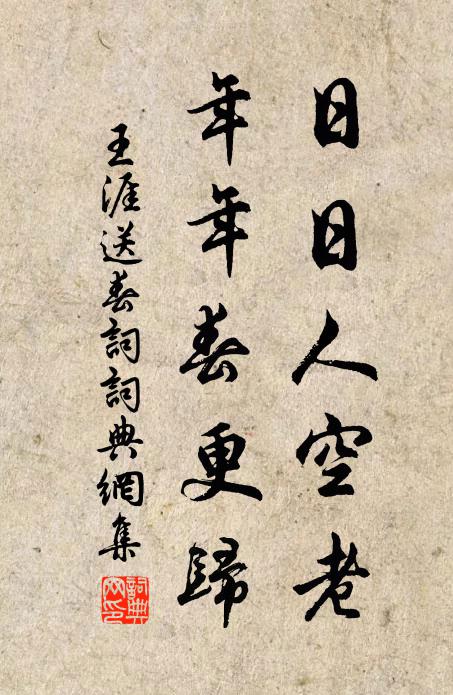 日日人空老
年年春更歸
王涯送春詞詞典網集
詞典
网印